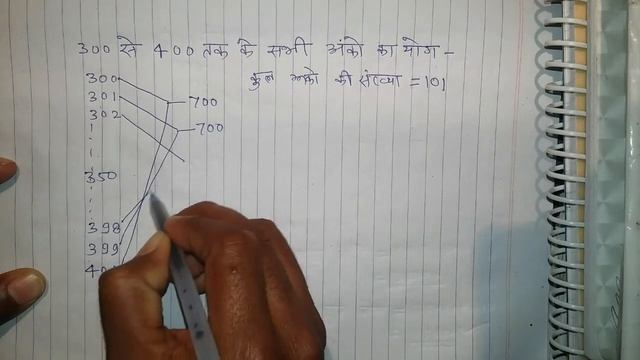 300 से 400 तक के सभी अंको का योग -
कुल अंको की संख्या = 101
300
301 700
302 700
350
398
399